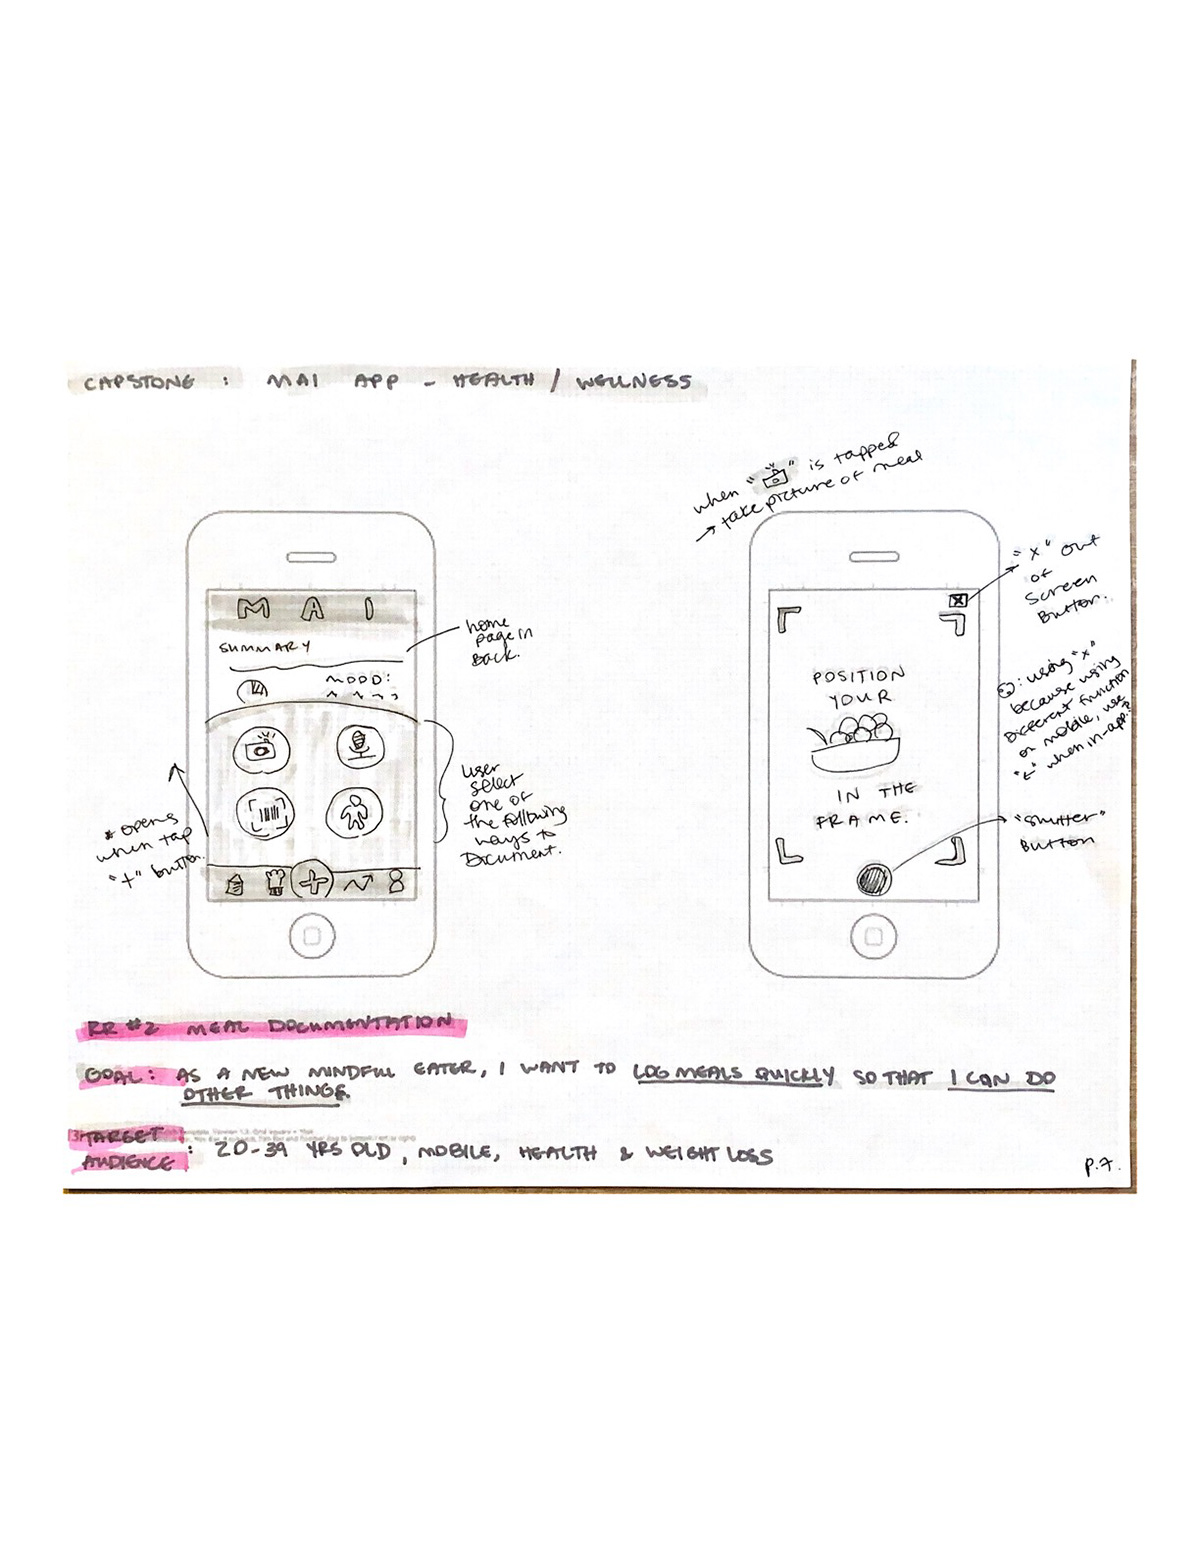 CAPSTONE : MAI APP - HEALTH / WELLNESS
when " " is tapped
→ take picture of meal
MAI
SUMMARY
MOOD:
home
page in
back.
user
select
one of
the following
ways to
Document.
* opens
when tap
"+" button.
POSITION
YOUR
IN THE
FRAME.
"X" out
of
screen
Button.
: using "x"
because using
Different function
on mobile, use
"←" when in-app?
"shutter"
Button
RR #2 MEAL DOCUMENTATION
GOAL: AS A NEW MINDFUL EATER, I WANT TO LOG MEALS QUICKLY SO THAT I CAN DO
OTHER THINGS.
TARGET
AUDIENCE : 20-39 YRS OLD, MOBILE, HEALTH & WEIGHT LOSS
P.7.